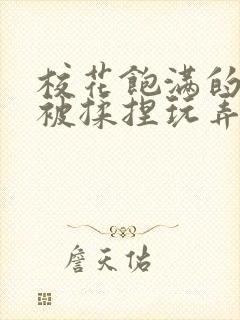 校花飽满的
被揉捏玩弄
詹天佑